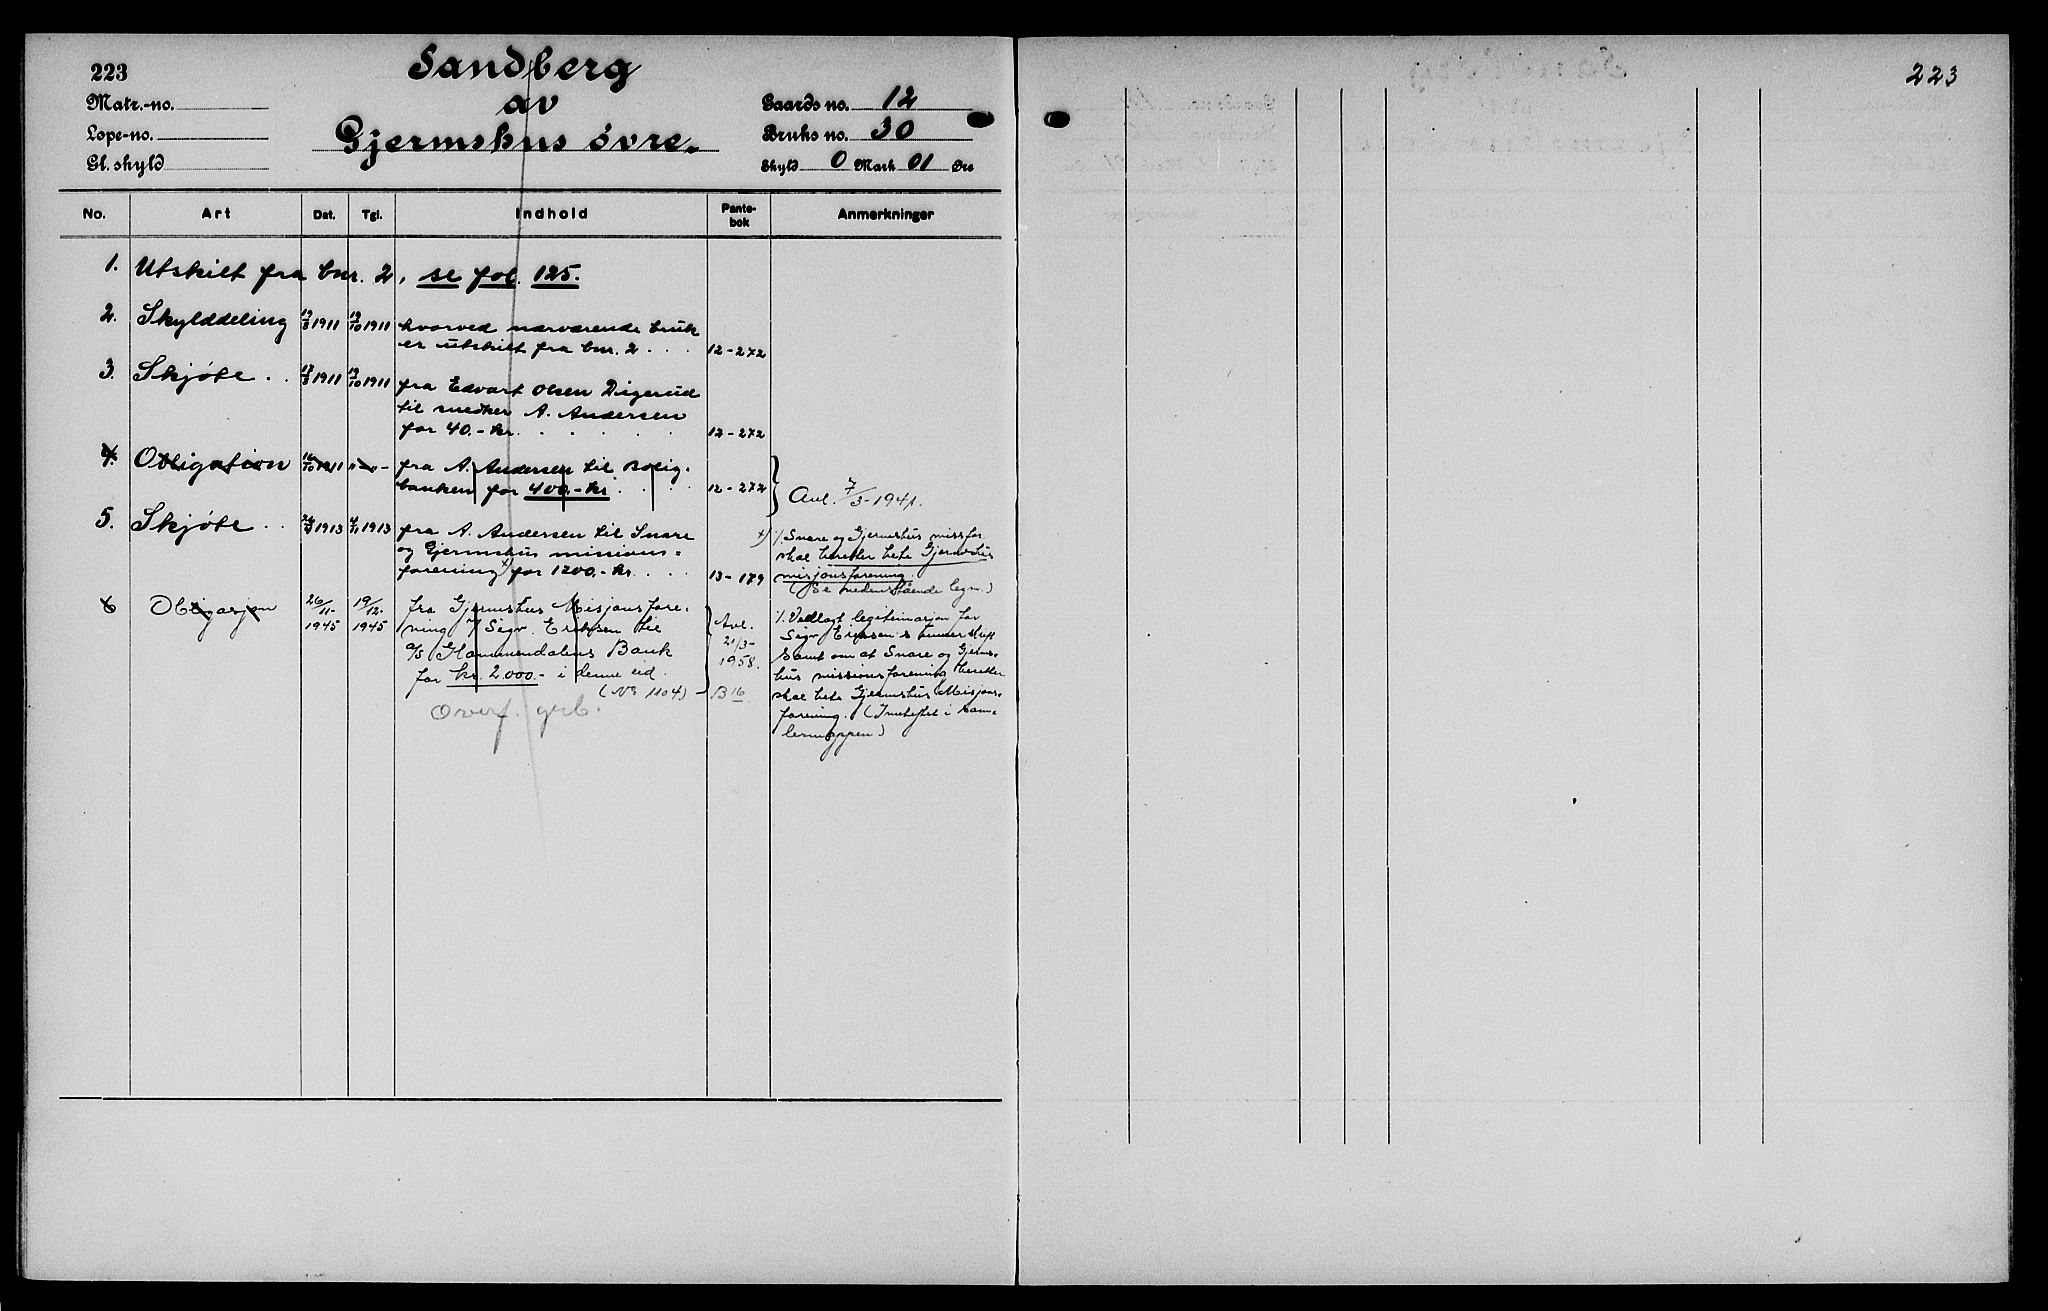 223
Sandberg
av
Gjermshus øvre.
Matr.-no.
Løpe-no.
Gl. skyld
Gaards no. 12
Bruks no. 30
Skyld 0 Mark 01 Øre
223
No. Art Dat. Tgl. Indhold Pante-bok Anmerkninger
1. Utskilt fra bnr. 2, se fol. 125.
2. Skylddeling 19/8 1911 19/10 1911 hvorved nærværende bruk
er utskilt fra bnr. 2 . . . 12-272
3. Skjøte . . 1911 19/10 1911 fra Edvart Olsen Digerud
til snedker A. Andersen
for 40.- kr. . . . . . 12-272
4. Obligation 16/10 1911 "-"- fra A. Andersen til Bolig-
banken for 400.- kr. . . . 12-272
Avl. 7/3-1941.
5. Skjøte . . 1913 1913 fra A. Andersen til Snare
og Gjermshus missions=
forening x) for 1200.- kr. . . . 13-179
x) ⁒ Snare og Gjermshus missfor.
skal heretter hete Gjermshus
misjonsforening
(Se nedenstående legm.)
6 Obligasjon 26/11-1945 19/12-1945 fra Gjermshus Misjonsfore-
ning v/ Sigv. Eriksen til
A/S Hammendalens Bank
for kr. 2.000.- i denne eid.
(No 1104)
Avl.
21/3-
1958.
B 16
⁒ Vedlagt legitimasjon for
Sigv Eriksens underskrift
samt om at Snare og Gjerms-
hus missionsforening heretter
skal hete Gjermshus Misjons-
forening. (Inneheftet i sam-
lermappen)
Overf. grb.